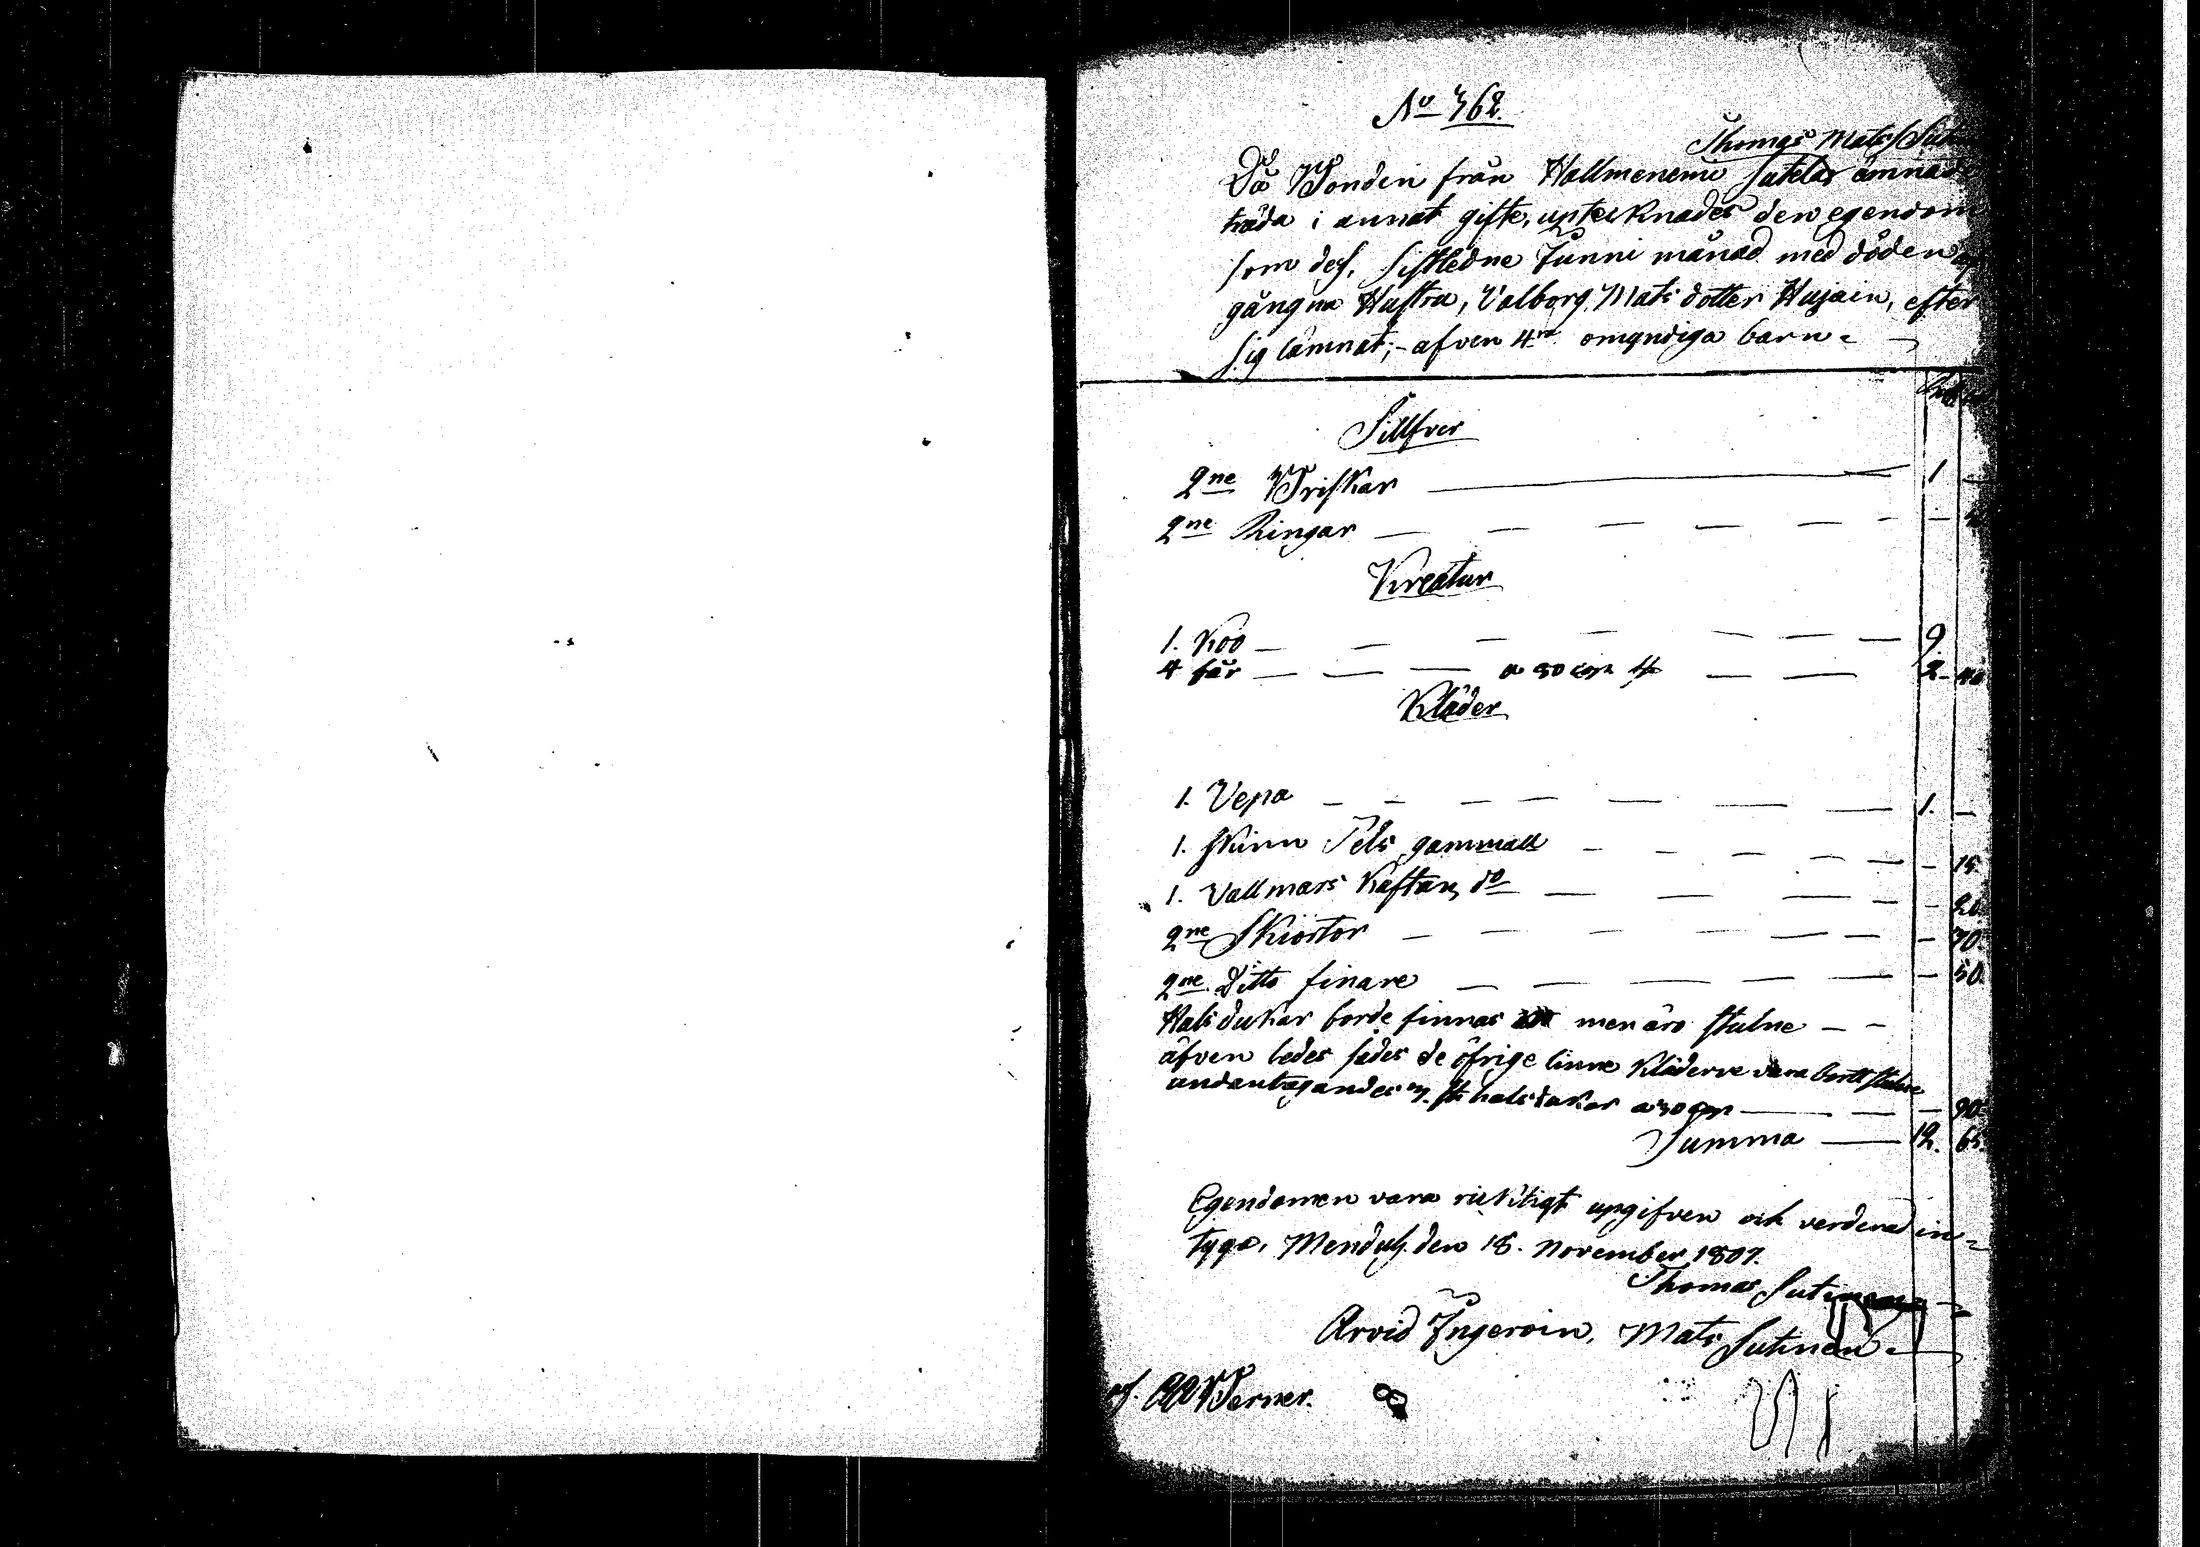 No 362.
Thomas Mats Sut
Då Bonden från Hallmeneme Sutela ämnade
träda i annat gifte, upteknades den egendom
som dess, sistledne Junni månad med döden af
gångna Hustru, Valborg Mats dotter Hujain, efter
sig lämnat; - afven 4ra omyndiga barn -
Sillfver
2ne Briskar — 1 —
2ne Ringar — —
Kreatur
1. Koo — 9.
4 får — a 50 cop st — 2 -
Kläder
1. Vepa — 1. —
1. skinn Pels gammall — - 15.
1. Vallmars Kaftan do — - 20.
2ne Skiortor — - 70.
2ne Ditto finare — - 50.
Hals dukar borde finnas men äro stulne — -
äfven ledes sades de öfrige linne Kläderne vara bortt stulne
undantagandes 3. st halsdukar a 30 cop — - 90.
Summa — 12. 65.
Egendomen vara ricktigt upgifven och verderad in-
tyga, Mendus. den 18. November 1807.
Thomas Sutinen
Arvid Ingeroin, Mats Sutinen
Werner.